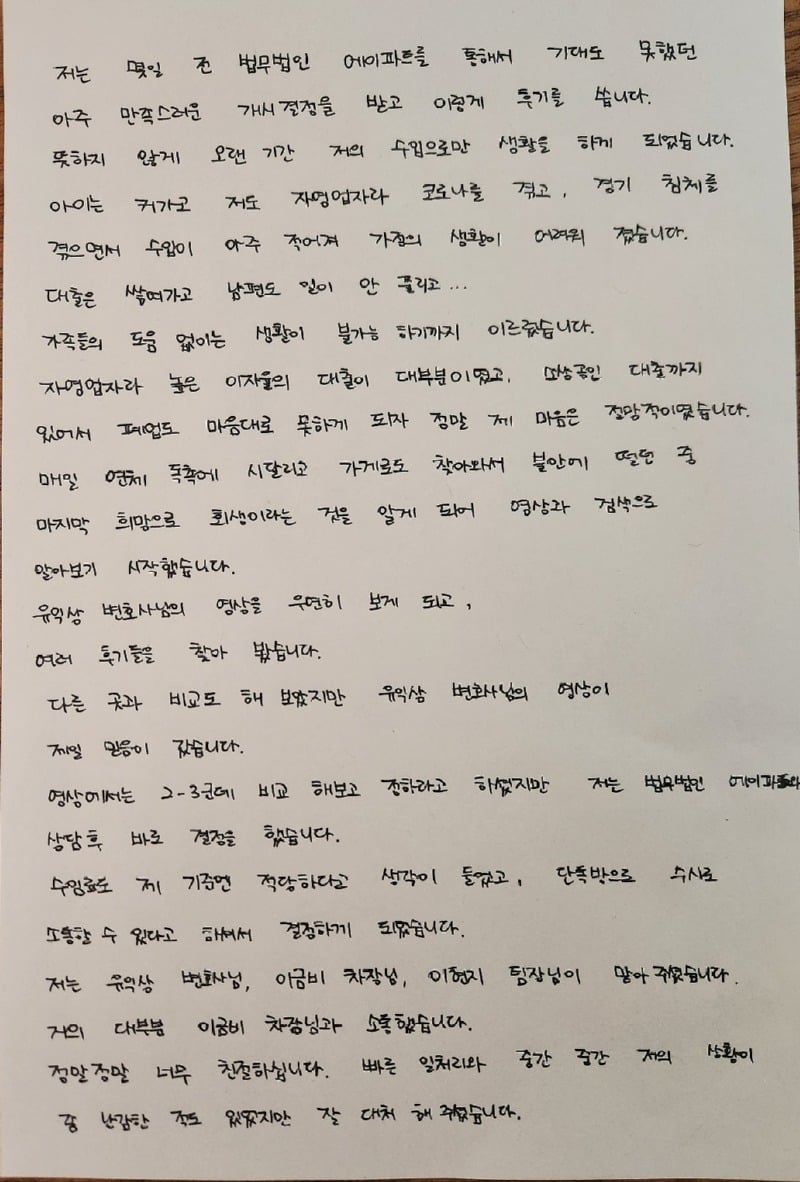 저는 몇일 전 법무법인 에이파트를 통해서 기대도 못했던
아주 만족스러운 개시결정을 받고 이렇게 후기를 씁니다.
뜻하지 않게 오랜 기간 저의 수입으로만 생활을 하게 되었습니다.
아이는 커가고 저도 자영업자라 코로나를 겪고, 경기 침체를
겪으면서 수입이 아주 적어져 가정의 생활이 어려워 졌습니다.
대출은 쌓여가고 남편도 일이 안 풀리고...
가족들의 도움 없이는 생활이 불가능 하기까지 이르렀습니다.
자영업자라 높은 이자율의 대출이 대부분이였고, 소상공인 대출까지
있어서 폐업도 마음대로 못하게 되자 정말 제 마음은 절망적이였습니다.
매일 연체 독촉에 시달리고 가게로도 찾아와서 불안에 떨던 중
마지막 희망으로 회생이라는 것을 알게 되어 영상과 검색으로
알아보기 시작했습니다.
유익상 변호사님의 영상을 우연히 보게 되고,
여러 후기들을 찾아 봤습니다.
다른 곳과 비교도 해 보았지만 유익상 변호사님의 영상이
제일 믿음이 갔습니다.
영상에서는 2-3군데 비교 해보고 정하라고 하셨지만 저는 법무법인 에이파트와
상담후 바로 결정을 했습니다.
수임료도 제 기준엔 적당하다고 생각이 들었고, 단톡방으로 수시로
소통할 수 있다고 하셔서 결정하게 되었습니다.
저는 유익상 변호사님, 이금비 차장님, 이현지 팀장님이 맡아 주셨습니다.
거의 대부분 이금비 차장님과 소통했습니다.
정말정말 너무 친절하십니다. 빠른 일처리와 중간 중간 저의 상황이
좀 난감한 적도 있었지만 잘 대처 해 주셨습니다.